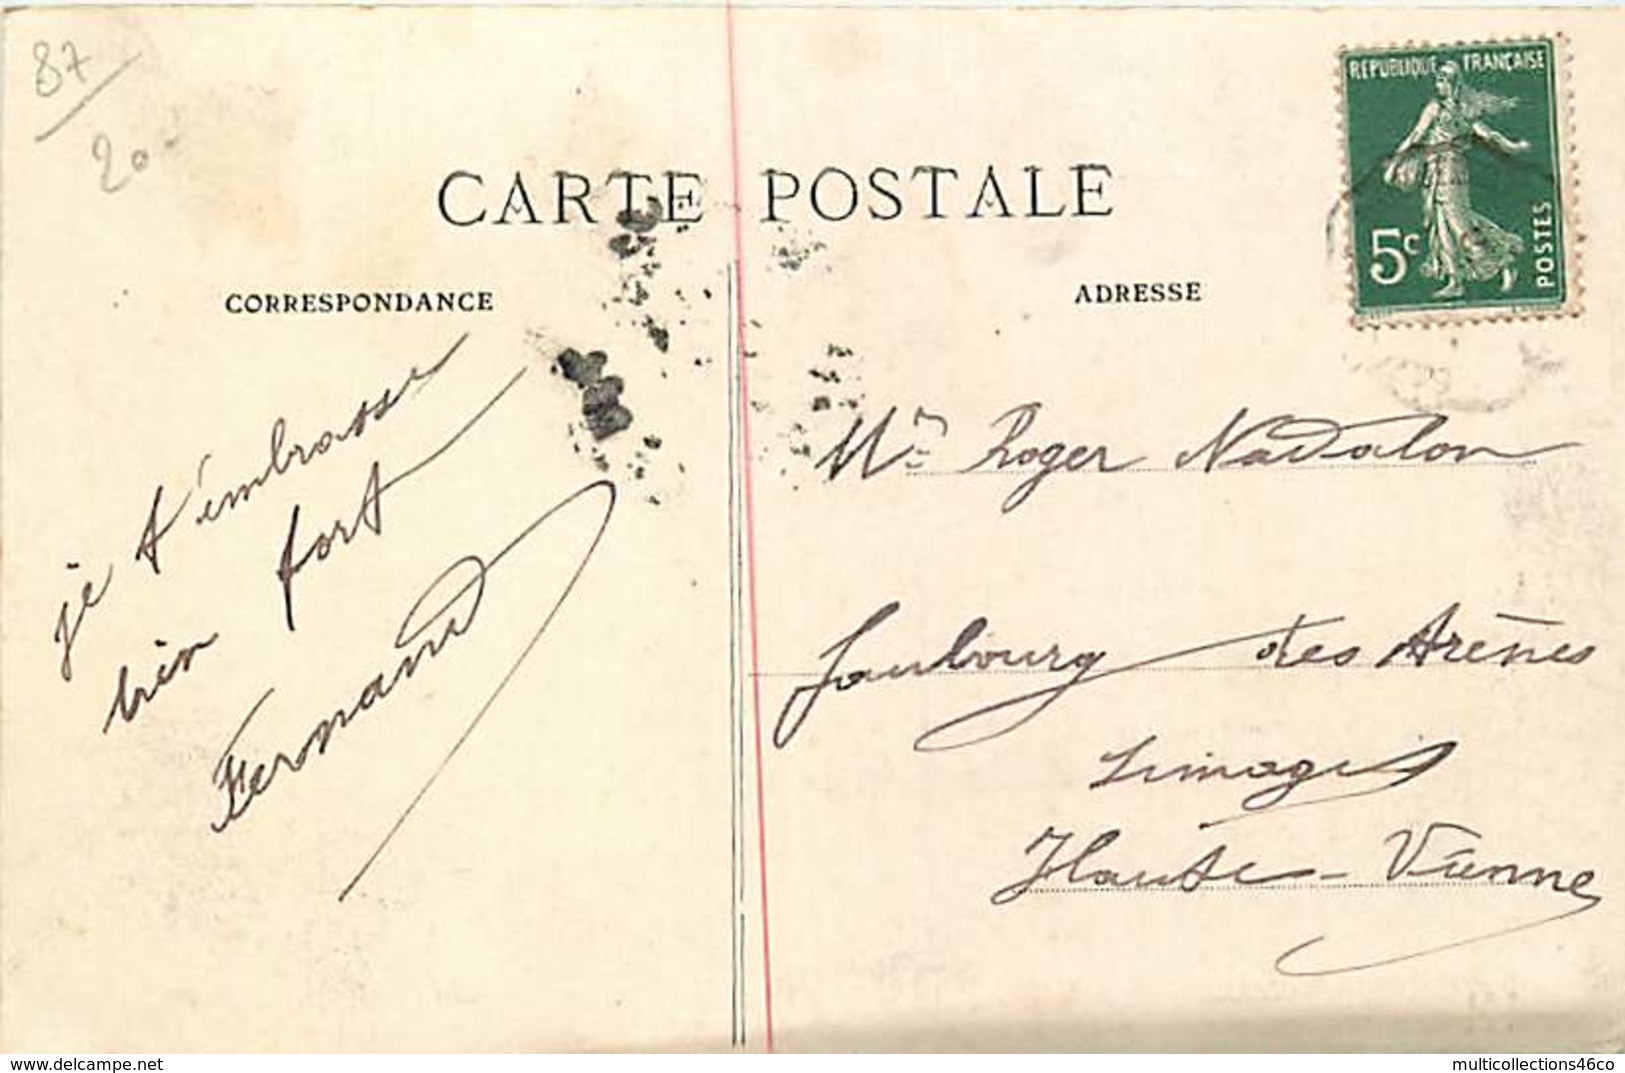 87
20
CARTE POSTALE
CORRESPONDANCE
je t'embrasse
bien fort
Fernand
ADRESSE
REPUBLIQUE FRANÇAISE
5c
POSTES
Mr Roger Nadalon
faubourg des Arènes
Limoges
Haute-Vienne
delcampe.net
multicollections46co